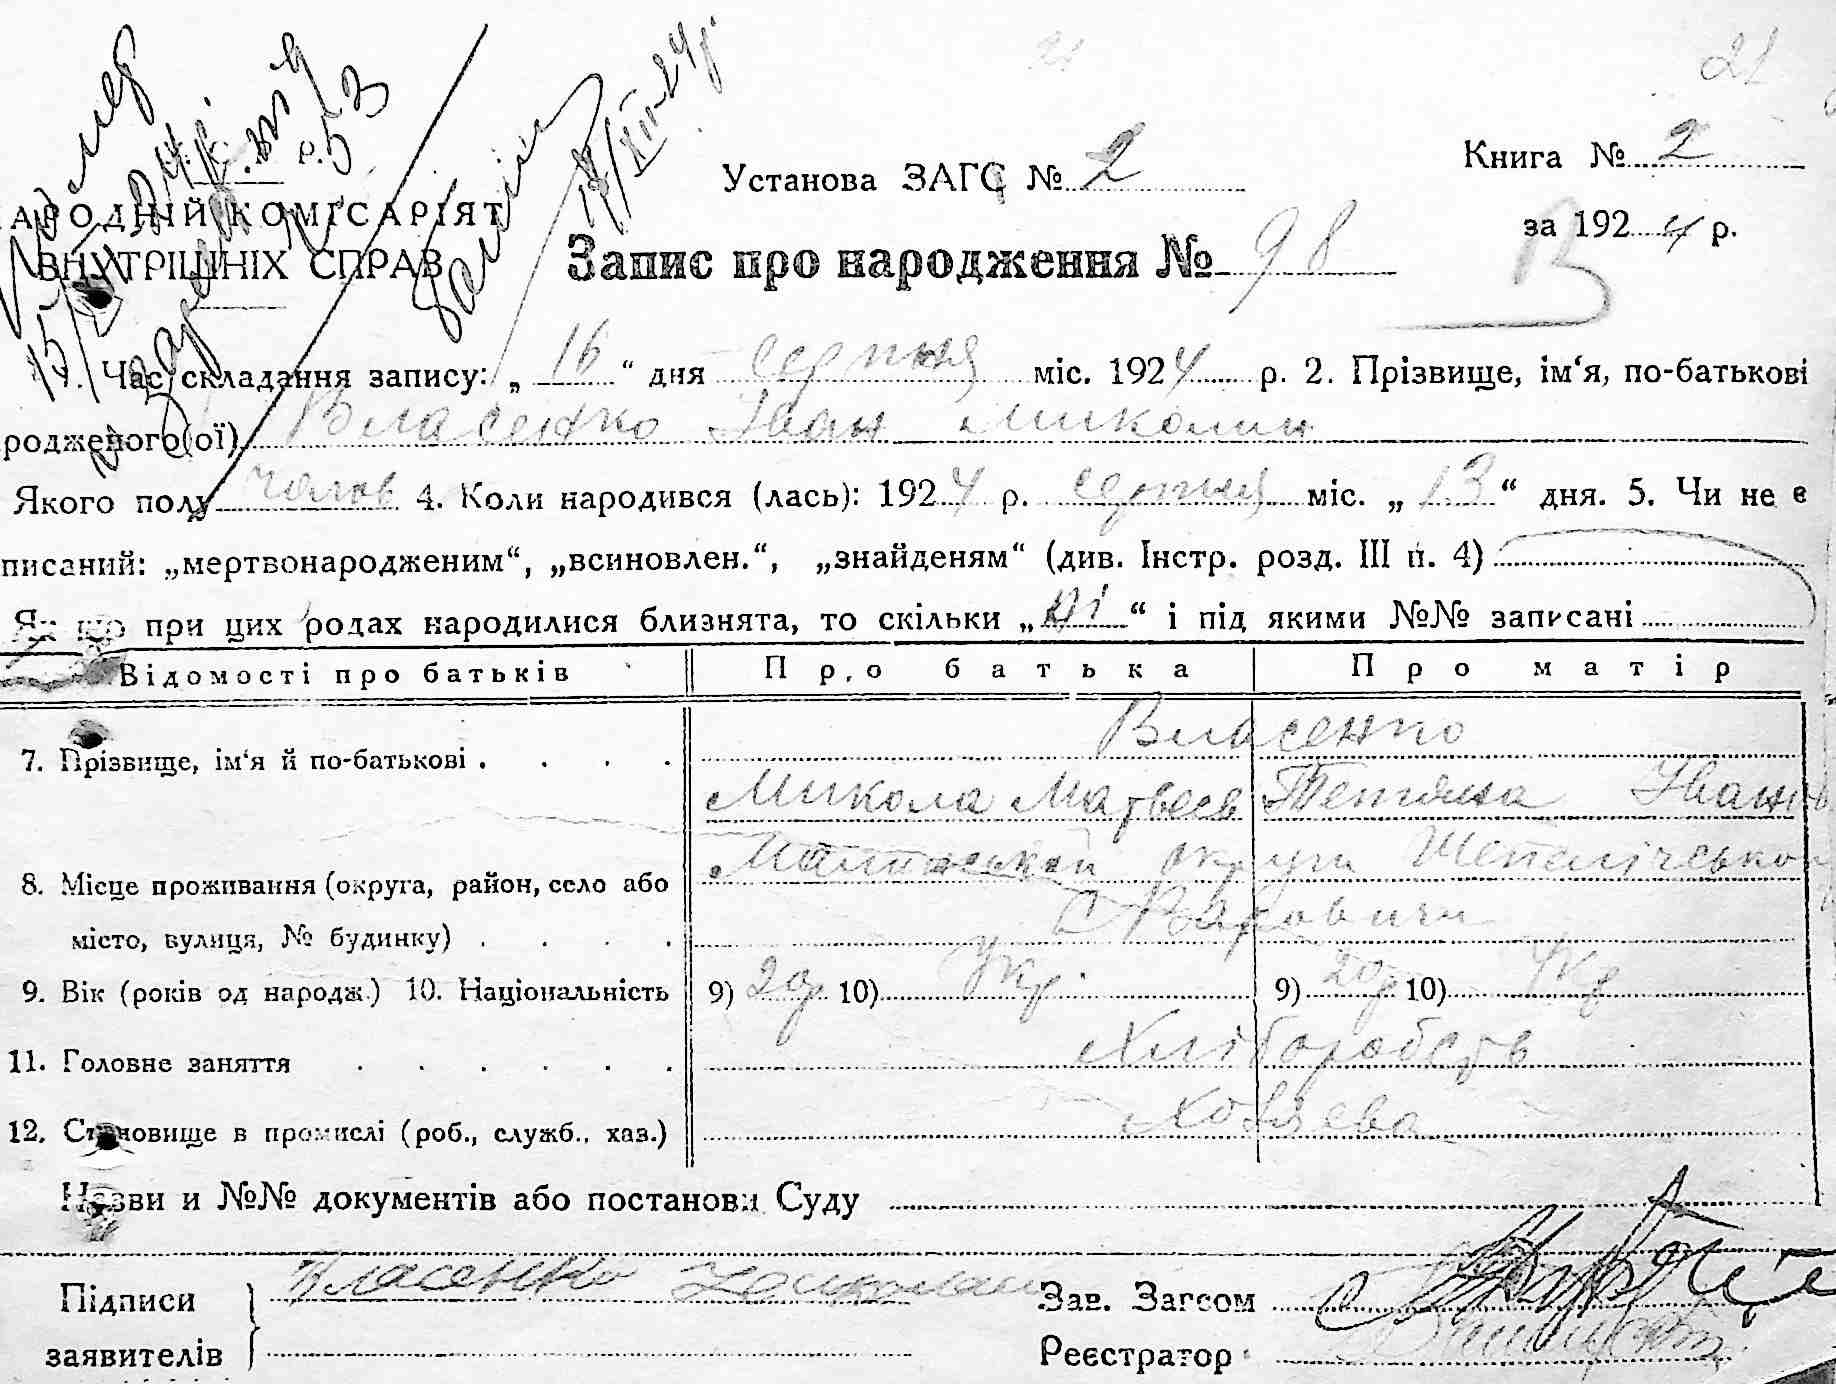 21
Помер
Установа ЗАГС № 2
Книга № 2
за 1924 р.
АРОДНІЙ КОМІСАРІЯТ
ВНУТРІШНІХ СПРАВ
Запис про народження № 98
1. Час складання запису: „16“ дня серпня міс. 1924 р. 2. Прізвище, ім‘я, по-батькові
родженого(ої) Власенко Іван Миколин
Якого полу чолов 4. Коли народився (лась): 1924 р. серпня міс. „13“ дня. 5. Чи не є
писаний: „мертвонародженим“, „всиновлен.“, „знайденям“ (див. Інстр. розд. III п. 4)
Як що при цих родах народилися близнята, то скільки „ні“ і під якими №№ записані
Відомості про батьків Про батька Про матір
Власенко
7. Прізвище, ім‘я й по-батькові
Микола Матвеев Тетяна Іванов
округи Шепелічсько
8. Місце проживання (округа, район, село або
с Варовичи
місто, вулиця, № будинку)
9. Вік (років од народж.) 10. Національність 9) 20р 10) Укр. 9) 20р 10) Укр
11. Головне заняття Хліборобств
12. Становище в промислі (роб., служб., хаз.) Хозяева
Назви и №№ документів або постанови Суду
Підписи Власенко
Зав. Загсом
заявителів
Реєстратор